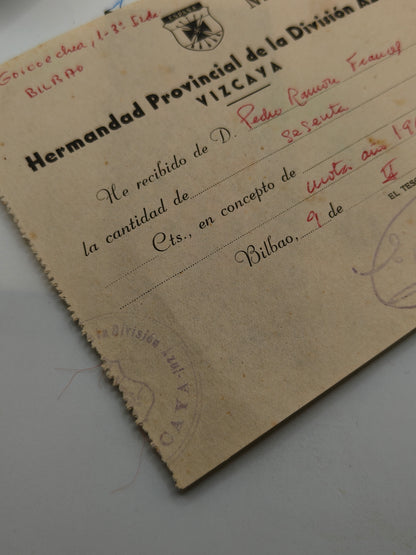 Goicoechea, 1-3º Izda
BILBAO
ESPAÑA
Nº
Hermandad Provincial de la División A
VIZCAYA
He recibido de D. Pedro Ramón Francés
la cantidad de sesenta
Cts., en concepto de cuota año 19
Bilbao, 9 de II
EL TESO
División Azul